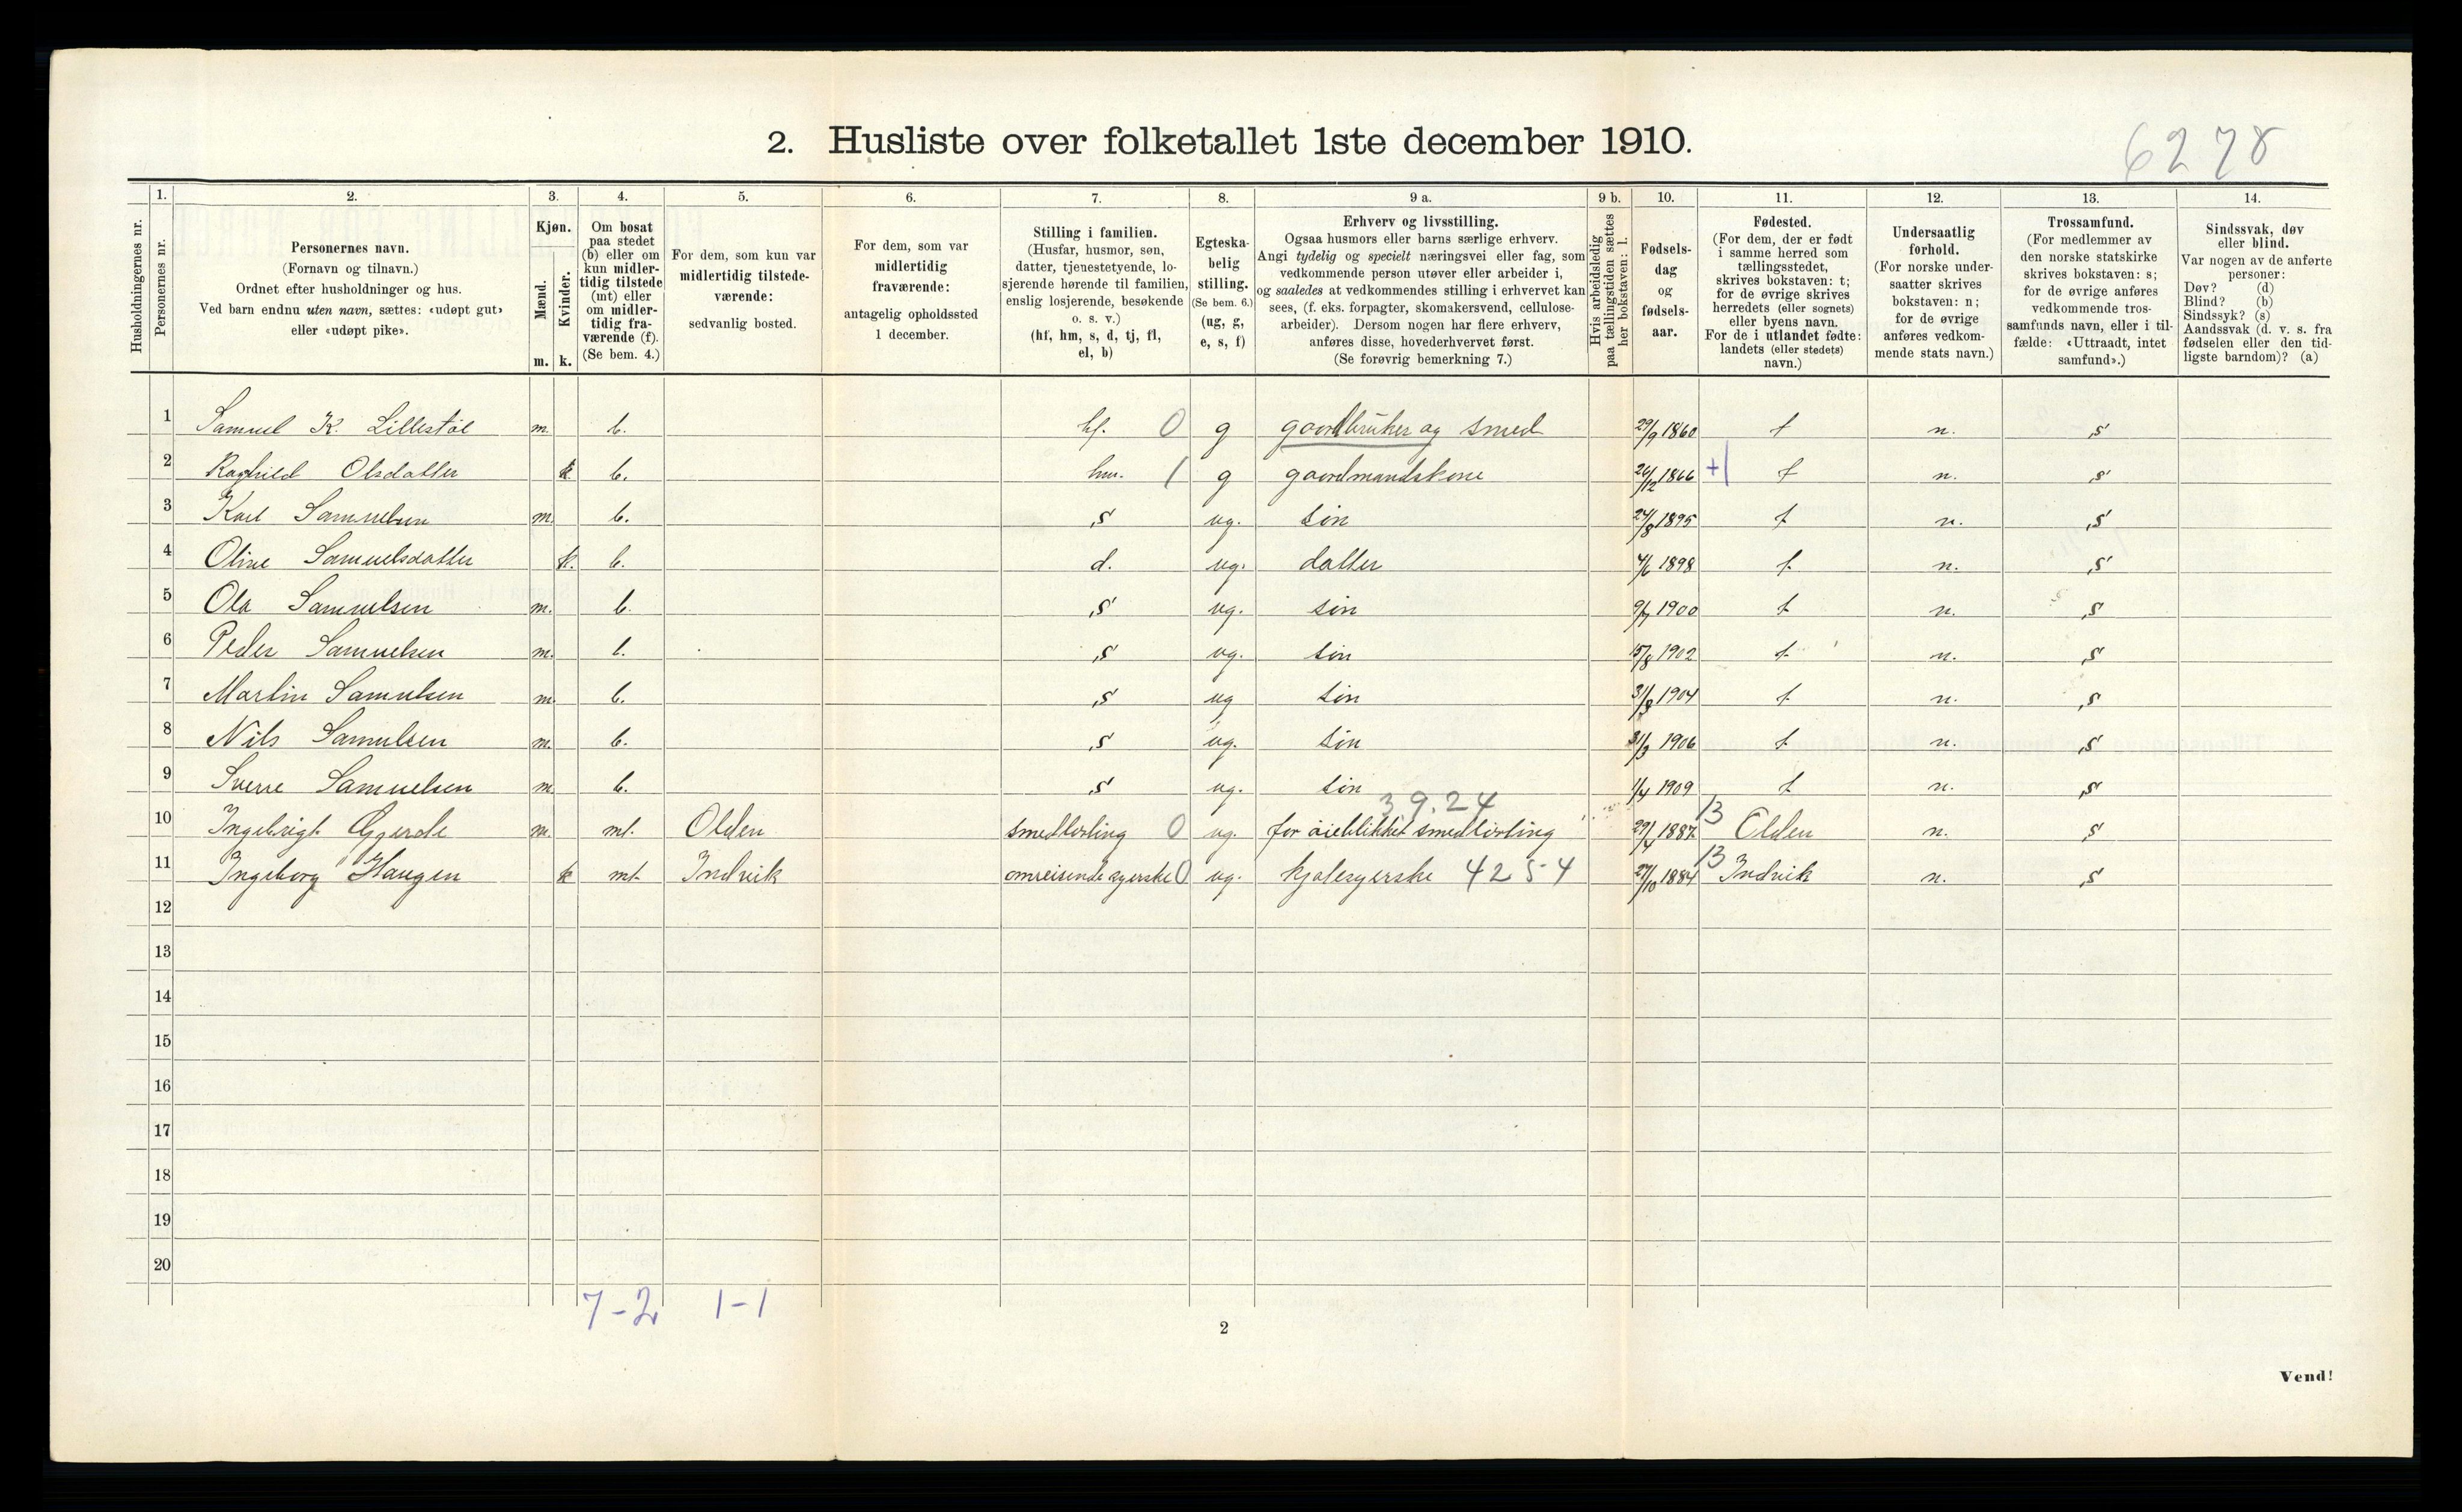 2. Husliste over folketallet 1ste december 1910.
6278
1. 2. 3. 4. 5. 6. 7. 8. 9 a. 9 b. 10. 11. 12. 13. 14.
Husholdningernes nr.
Personernes nr.
Personernes navn.
(Fornavn og tilnavn.)
Ordnet efter husholdninger og hus.
Ved barn endnu uten navn, sættes: «udøpt gut»
eller «udøpt pike».
Kjøn.
Mænd.
m.
Kvinder.
k.
Om bosat
paa stedet
(b) eller om
kun midler-
tidig tilstede
(mt) eller
om midler-
tidig fra-
værende (f).
(Se bem. 4.)
For dem, som kun var
midlertidig tilstede-
værende:
sedvanlig bosted.
For dem, som var
midlertidig
fraværende:
antagelig opholdssted
1 december.
Stilling i familien.
(Husfar, husmor, søn,
datter, tjenestetyende, lo-
sjerende hørende til familien,
enslig losjerende, besøkende
o. s. v.)
(hf, hm, s, d, tj, fl,
el, b)
Egteska-
belig
stilling.
(Se bem. 6.)
(ug, g,
e, s, f)
Erhverv og livsstilling.
Ogsaa husmors eller barns særlige erhverv.
Angi tydelig og specielt næringsvei eller fag, som
vedkommende person utøver eller arbeider i,
og saaledes at vedkommendes stilling i erhvervet kan
sees, (f. eks. forpagter, skomakersvend, cellulose-
arbeider). Dersom nogen har flere erhverv,
anføres disse, hovederhvervet først.
(Se forøvrig bemerkning 7.)
Hvis arbeidsledig
paa tællingstiden sættes
her bokstaven: l.
Fødsels-
dag
og
fødsels-
aar.
Fødested.
(For dem, der er født
i samme herred som
tællingsstedet,
skrives bokstaven: t;
for de øvrige skrives
herredets (eller sognets)
eller byens navn.
For de i utlandet fødte:
landets (eller stedets)
navn.)
Undersaatlig
forhold.
(For norske under-
saatter skrives
bokstaven: n;
for de øvrige
anføres vedkom-
mende stats navn.)
Trossamfund.
(For medlemmer av
den norske statskirke
skrives bokstaven: s;
for de øvrige anføres
vedkommende tros-
samfunds navn, eller i til-
fælde: «Uttraadt, intet
samfund».)
Sindssvak, døv
eller blind.
Var nogen av de anførte
personer:
Døv? (d)
Blind? (b)
Sindssyk? (s)
Aandssvak (d. v. s. fra
fødselen eller den tid-
ligste barndom)? (a)
1 Samuel K. Lillestøl m. b. hf. 0 g gaardbruker og smed 29/9 1860 t n. s
2 Raghild Olsdatter k b. hm. 1 g gaardmandskone 26/12 1866 +1 t n. s
3 Karl Samuelsen m. b. s ug. søn 24/8 1895 t n. s
4 Oline Samuelsdatter k. b. d. ug. datter 4/6 1898 t n. s
5 Ola Samuelsen m. b. s ug. søn 9/7 1900 t n. s
6 Peder Samuelsen m. b. s ug. søn 15/8 1902 t n. s
7 Martin Samulsen m. b. s ug søn 31/8 1904 t n. s
8 Nils Samulsen m. b. s ug. søn 31/3 1906 t n. s
9 Sverre Samuelsen m b. s ug. søn 1/4 1909 t n. s
39.24
10 Ingebrigt Gjerde m. mt. Olden smedlærling 0 ug. for øieblikket smedlærling 29/4 1887 13 Olden n. s
11 Ingeborg Haugen k mt. Indvik omreisende syerske 0 ug. kjolesyerske 4254 27/10 1884 13 Indvik n. s
12
13
14
15
16
17
18
19
20
7-2 1-1
2
Vend!